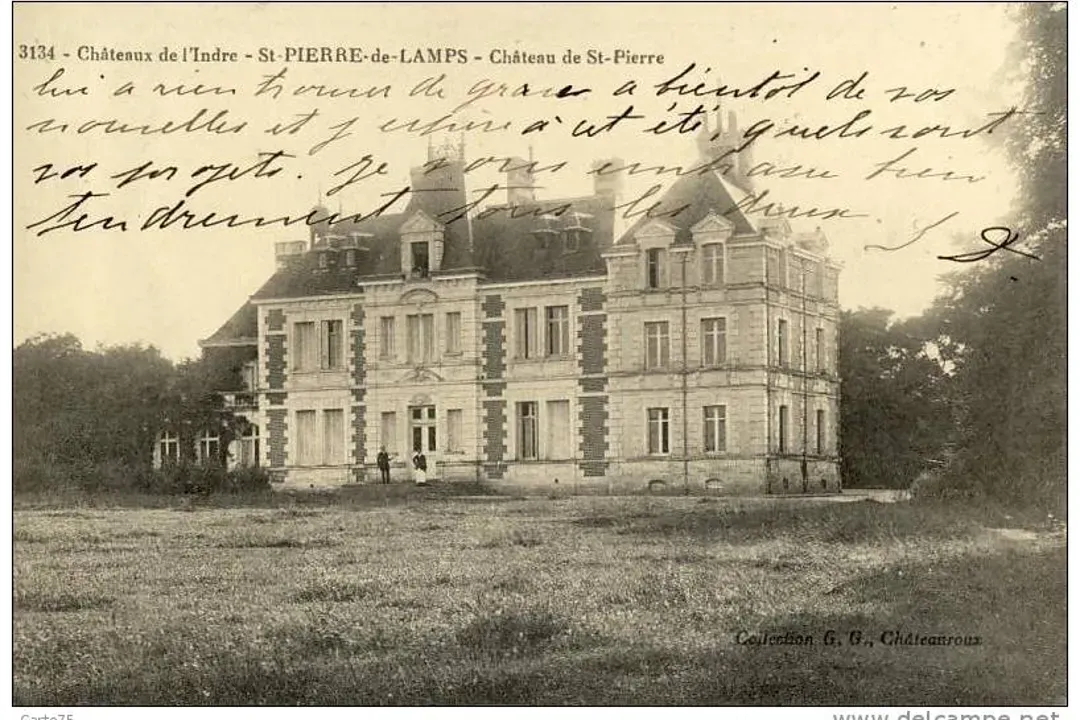 3134 - Châteaux de l'Indre - St-PIERRE-de-LAMPS - Château de St-Pierre
lui a rien trouver de grave a bientôt de vos
nouvelles et j'
à cet été, quels sont
vos projets. Je vous embrasse bien
tendrement tous les deux
Collection G. G., Châteauroux
Carte75
www.delcampe.net